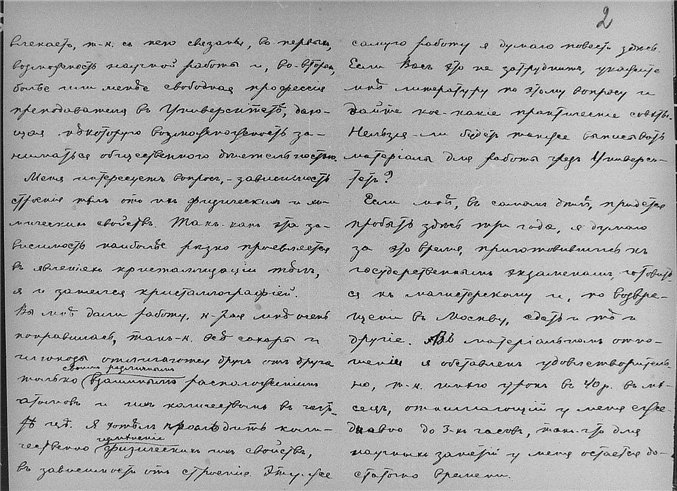 2
влекаетъ, т.-к. съ нею связаны, во первыхъ,
возможность научной работы и, во-вторыхъ,
более или менѣе свободная профессія
преподавателя въ Университетѣ, даю-
щая нѣкоторую возможность за-
ниматься общественной дѣятельностью.
Меня интересуетъ вопросъ, - зависимость
строенія тѣлъ отъ ихъ физическихъ и хи-
мическихъ свойствъ. Такъ какъ эта за-
висимость наиболѣе рѣзко проявляется
въ явленіяхъ кристаллизаціи тѣлъ,
я и занялся кристаллографіей.
Вы мнѣ дали работу, к-рая мнѣ очень
понравилась, такъ-к. всѣ сахары и
глюкозы отличаются другъ отъ друга
только взаимнымъ расположеніемъ
атомовъ и ихъ количествомъ въ
я хотѣлъ прослѣдить
измѣненіе
физическихъ ихъ свойствъ,
въ зависимости отъ строенія. Эту-же
самую работу я думаю повести здѣсь.
Если Васъ это не затруднитъ, укажите
мнѣ литературу по этому вопросу и
дайте кое-какіе практическіе совѣты.
Нельзя-ли будетъ также выписывать
матеріалы для работы чрезъ Универси-
тетъ?
Если мнѣ, въ самомъ дѣлѣ, придется
пробыть здѣсь три года, я думаю
за это время, приготовившись къ
государственнымъ экзаменамъ, готовить-
ся къ магистерскому и, по возвра-
щеніи въ Москву, сдать и тѣ и
другіе. Въ матеріальномъ отно-
шеніи я обставленъ удовлетворитель-
но, т.-к. имѣю урокъ въ 40 р. въ мѣ-
сяцъ, отнимающій у меня еже-
дневно до 3-хъ часовъ, такъ-что для
научныхъ занятій у меня остается до-
статочно времени.